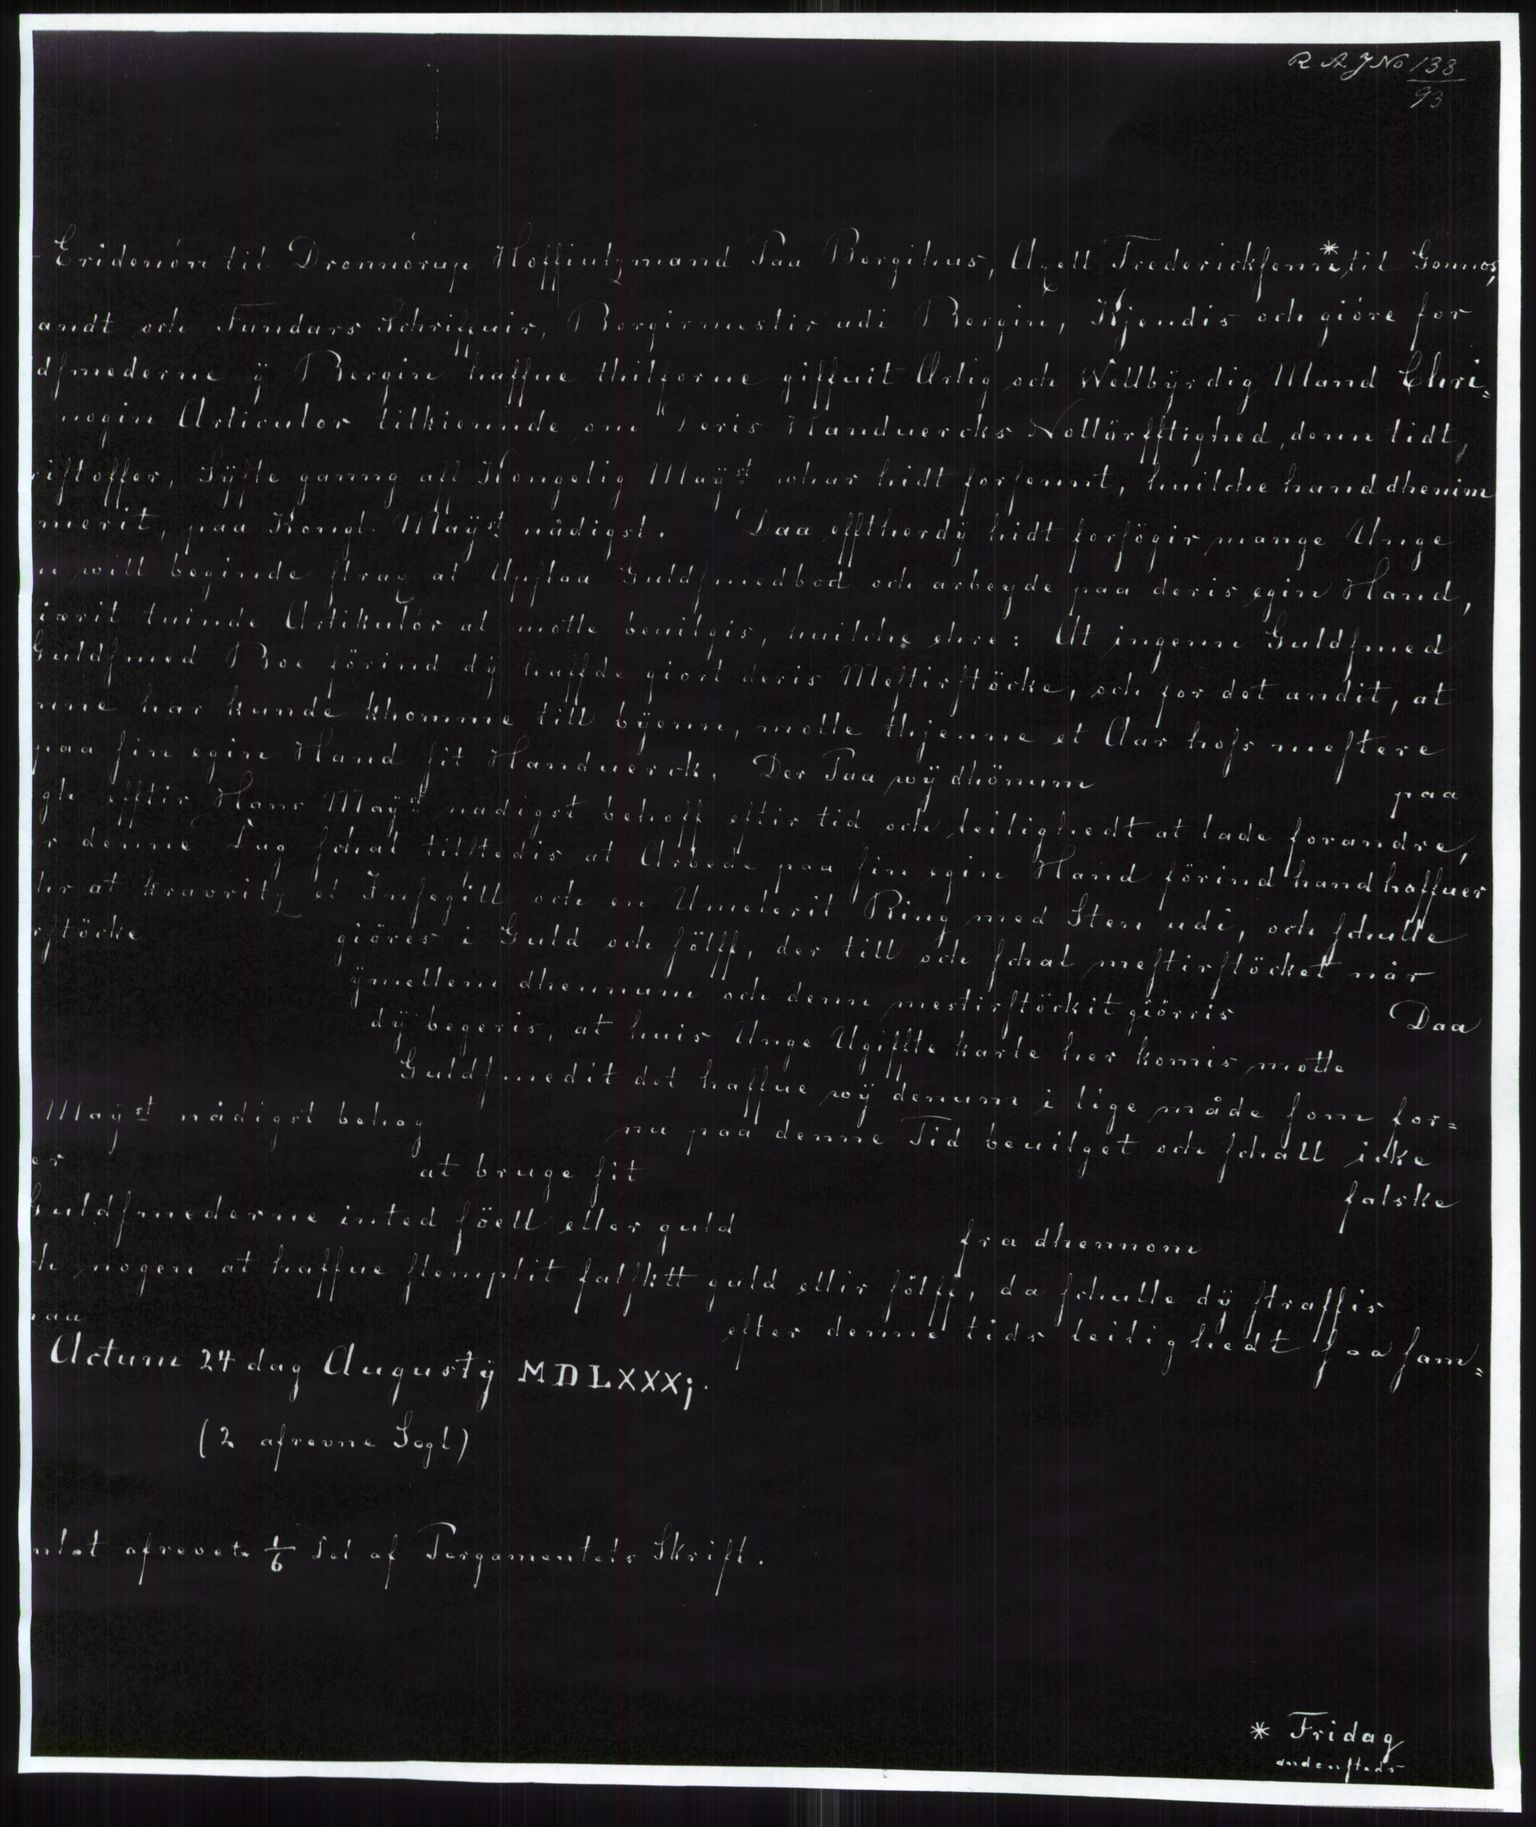 R A J No 138/93
Eridenön til Dronnörup Hoffintzmand Paa Bergihus, Axell Frederickſenn* til Gounos,
andt och Fundars Schriffuir, Borgirmestir udi Bergin, Kjendis och giöre for
dſmederne ÿ Bergin haffue thilforne giffuit Ærlig och Wellbÿrdig Mand Chri=
nogin Articulor tilkiennde om Deris Handuercks Nottürfftighed, denn tidt,
riſtoffer, Sÿſte ganng aff Kongelig Maÿst whar hidt forſennt, huilche hand dhenim
merit, paa Kongl. Maÿst nådigst. Daa efftherdÿ hidt forſögir mange Unge
n will beginde ſtrax at Upſlaa Guldſmedbod och arbeyde paa deris egin Hand,
iærit tuinde Artikulor at motte beuilgis, huilche ehre: At ingenn Guldſmed
Guldſmed Boe förind dÿ haffde giort deris Meſtirſtöcke, och for det andit, at
nne har kunde khomme till bÿenn, motte thjenne et Aar hoſs meſtere
paa ſin egin Hand ſit Handuerck. Der Paa wÿ dhönum paa
gh effter Hans Maÿst nadigst behoff eftir tid och leilighedt at lade forandre,
r denne Dag ſchal tilſtedis at Arbede paa ſin egin Hand förind hand haffuer
hr at kravritz et Inſegill och en Umelerit Ring med Sten udi, och ſchulle
rſtöcke giöres i Guld och ſölff, der till och ſchal meſtirſtöcket når
ÿmellem dhennum och denn mestirſtöckit giörris Daa
dÿ begeris, at huis Unge Ugiffte karle her komis motte
Guldſmedit det haffue wÿ denum i lige måde ſom for=
Maÿst nådigst behag nu paa denne Tid beuilget och ſchall icke
er at bruge ſit falske
Guldſmederne inted ſöell eller guld fra dhennom
th nogen at haffue ſtemplit falſktt guld ellir ſölff, da ſchulle dÿ ſtraffis
naa efter denne tids leilighedt ſaa ſam=
Actum 24 dag Augustÿ MDLXXXj.
(2 afrevne Segl)
nlat afrevet 1/6 Del af Pergamentets Skrift.
* Fridag
andenſteds